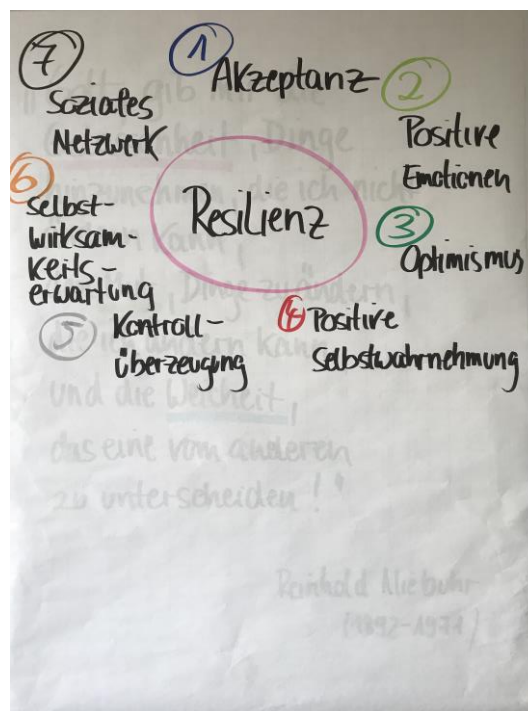 1 Akzeptanz
2
Positive
Emotionen
3
Optimismus
4 Positive
Selbstwahrnehmung
5 Kontroll-
überzeugung
6
Selbst-
wirksam-
keits-
erwartung
7
Soziales
Netzwerk
Resilienz
gib
, Dinge
die ich nicht
, Dinge zu ändern,
die ich ändern kann
und die Weisheit,
das eine vom anderen
zu unterscheiden!"
Reinhold Niebuhr